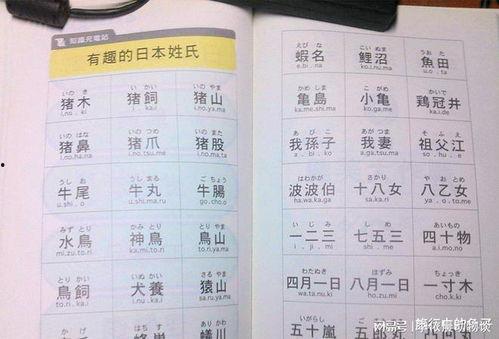 知識充電站
有趣的日本姓氏
いの き い かい いの やま
猪木 猪飼 猪山
i.no.ki i.kai i.no.ya.ma
いの はな いの つめ いの また
猪鼻 猪爪 猪股
i.no.ha.na i.no.tsu.me i.no.ma.ta
うし お うし まる ご ちょう
牛尾 牛丸 牛腸
u.shi.o u.shi.ma.ru go.cho.o
みず とり かみ とり とり やま
水鳥 神鳥 鳥山
mi.zu.to.ri ka.mi.to.ri to.ri.ya.ma
とり かい いぬ かい さる やま
鳥飼 犬養 猿山
to.ri.ka.i i.nu.ka.i sa.ru.ya.ma
えび な こい ぬま うお た
蝦名 鯉沼 魚田
e.bi.na ko.i.nu.ma u.o.ta
かめ しま こ がめ かいで
亀島 小亀 鶏冠井
ka.me.shi.ma ko.ga.me ka.i.de
あ び こ あが つま そ ふ え
我孫子 我妻 祖父江
a.bi.ko a.ga.tsu.ma so.hu.e
はわかが さかり や おとめ
波波伯 十八女 八乙女
ha.wa.ka.ga sa.ka.ri ya.o.to.me
い じ み し め あいもの
一二三 七五三 四十物
i.ji.mi shi.me a.i.mo.no
わたぬき ほずみ ちょっき
四月一日 八月一日 一寸木
wa.ta.nu.ki ho.zu.mi cho.k.ki
いがらし
五十嵐 五郎丸